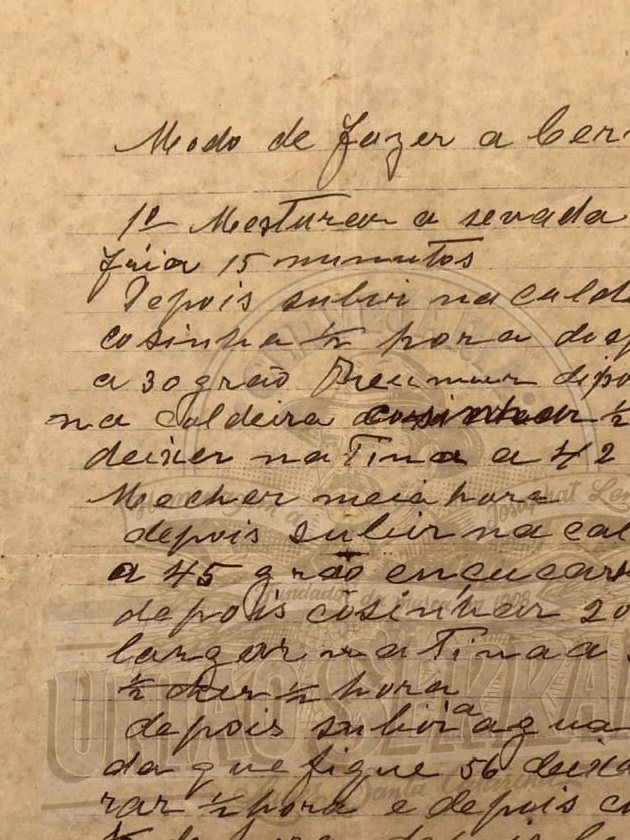 Modo de fazer a Cer
1º Mesturar a sevada
fria 15 minutos
Depois subir na cald
cosinha ½ hora
a 30 grão Preumur
na Caldeira ½
deixer na Tina a 42
Mecher meia hora
depois subir na cal
a 45 grão ençucar
depois cosinhar 20
largar na Tina a
½ hora
depois subir a agua
da que fique 56 deixa
rar ½ hora e depois c
UNIÃO SERRANA
Fundada 1908
Santa Catarina